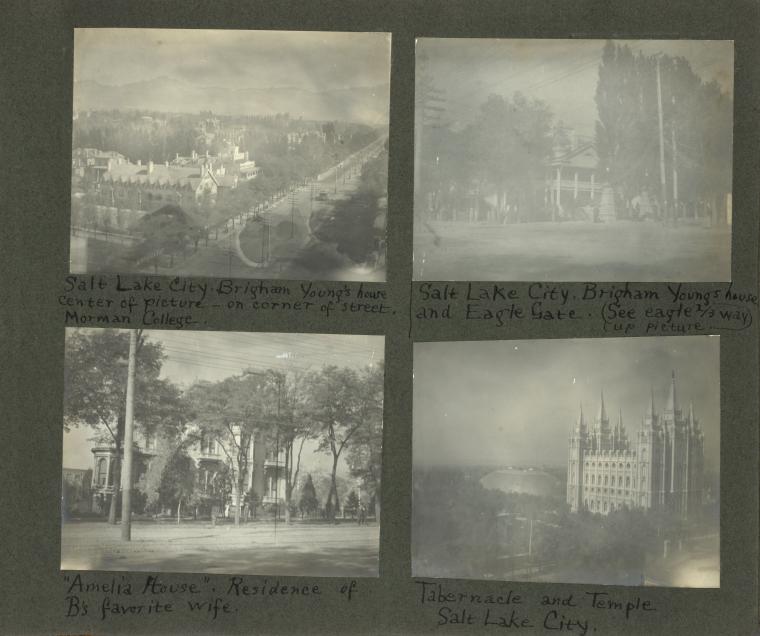 Salt Lake City. Brigham Young's house
center of picture - on corner of street.
Morman College.
Salt Lake City. Brigham Young's house
and Eagle Gate. (See eagle 2/3 way
up picture)
"Amelia House". Residence of
B's favorite wife.
Tabernacle and Temple
Salt Lake City.